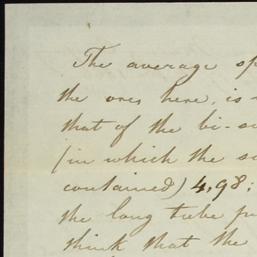 The average sp
the ores here, is
that of the bi-su
(in which the su
contained) 4,98;
the long tube pr
think that the